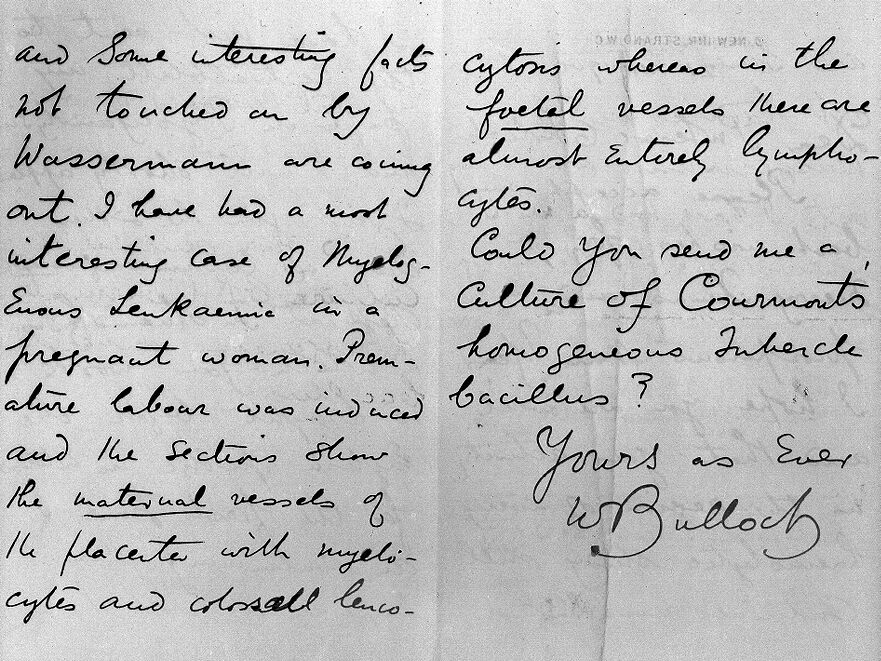 and Some interesting facts
not touched on by
Wassermann are coming
out. I have had a most
interesting case of Myelog-
Enous Leukaemia in a
pregnant woman. Prem-
ature labour was induced
and the sections show
the maternal vessels of
the placenta with myelo-
cytes and colossall leuco-
cytosis whereas in the
foetal vessels there are
almost Entirely lympho-
cytes.
Could you send me a
Culture of Courmonts
homogeneous Tubercle
bacillus?
Yours as Ever
W Bulloch
NEW INN, STRAND W.C.